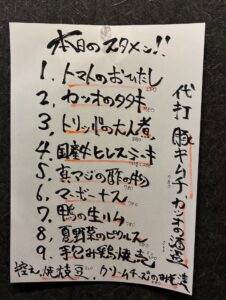 本日のスタメン!!
1. トマトのおひたし
2. カツオのタタキ
3. トリッパの大人煮
4. 国産牛ヒレステーキ
5. 真アジの酢の物
6. マーボーナス
7. 鴨の生ハム
8. 夏野菜のピクルス
9. 手包み鶏焼売
代打 豚キムチ カツオの酒盗
控え 焼枝豆、クリームチーズの